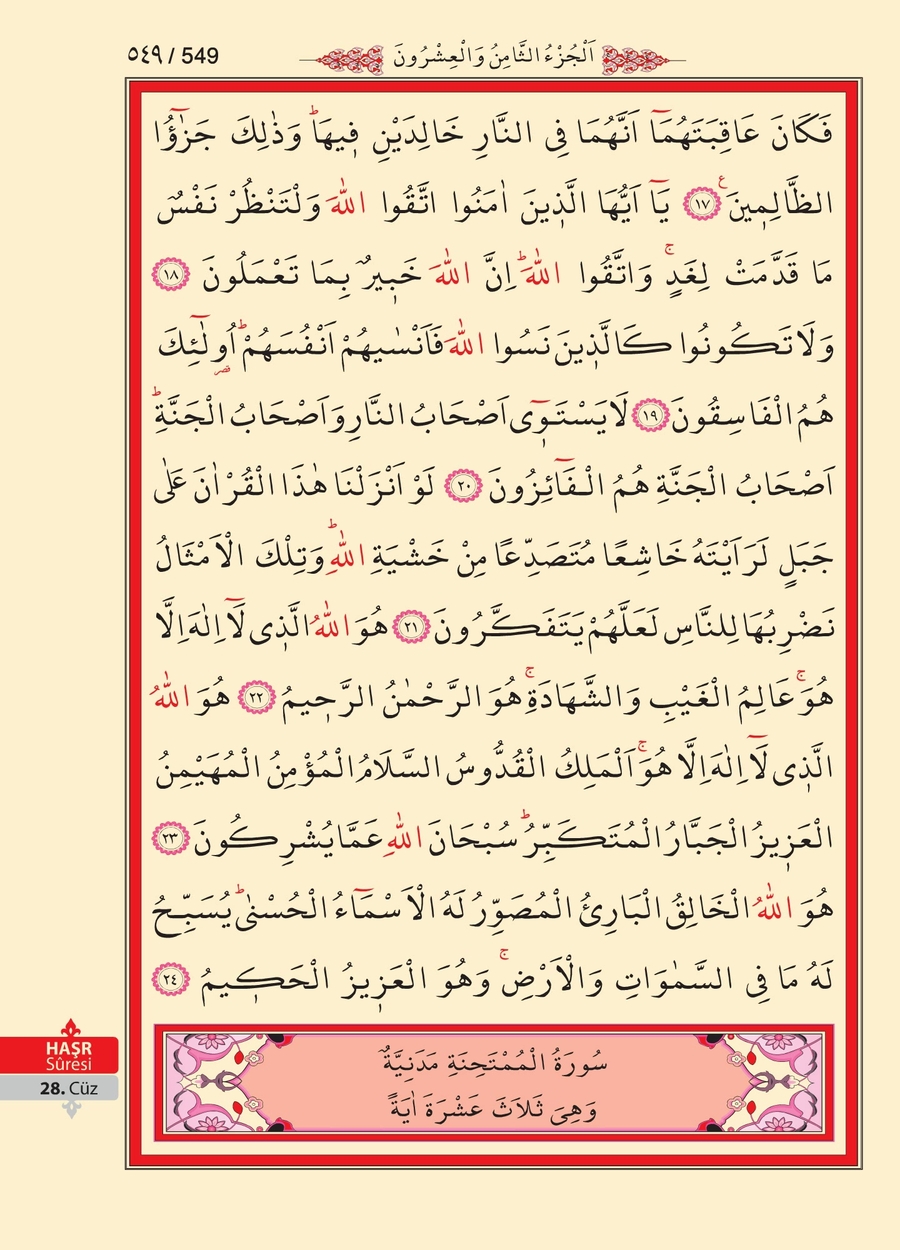 اَلْجُزْءُ الثَّامِنُ وَالْعِشْرُونَ
549 / ٥٤٩
فَكَانَ عَاقِبَتَهُمَٓا اَنَّهُمَا فِي النَّارِ خَالِدَيْنِ فٖيهَاؕ وَذٰلِكَ جَزٰٓؤُا
الظَّالِمٖينَࣖ ﴿١٧﴾ يَٓا اَيُّهَا الَّذٖينَ اٰمَنُوا اتَّقُوا اللّٰهَ وَلْتَنْظُرْ نَفْسٌ
مَا قَدَّمَتْ لِغَدٍۚ وَاتَّقُوا اللّٰهَؕ اِنَّ اللّٰهَ خَبٖيرٌ بِمَا تَعْمَلُونَ ﴿١٨﴾
وَلَا تَكُونُوا كَالَّذٖينَ نَسُوا اللّٰهَ فَاَنْسٰيهُمْ اَنْفُسَهُمْؕ اُو۬لٰٓئِكَ
قصر
هُمُ الْفَاسِقُونَ ﴿١٩﴾ لَا يَسْتَوٖٓي اَصْحَابُ النَّارِ وَاَصْحَابُ الْجَنَّةِؕ
اَصْحَابُ الْجَنَّةِ هُمُ الْفَٓائِزُونَ ﴿٢٠﴾ لَوْ اَنْزَلْنَا هٰذَا الْقُرْاٰنَ عَلٰى
جَبَلٍ لَرَاَيْتَهُ خَاشِعًا مُتَصَدِّعًا مِنْ خَشْيَةِ اللّٰهِؕ وَتِلْكَ الْاَمْثَالُ
نَضْرِبُهَا لِلنَّاسِ لَعَلَّهُمْ يَتَفَكَّرُونَ ﴿٢١﴾ هُوَ اللّٰهُ الَّذٖي لَٓا اِلٰهَ اِلَّا
هُوَۚ عَالِمُ الْغَيْبِ وَالشَّهَادَةِۚ هُوَ الرَّحْمٰنُ الرَّحٖيمُ ﴿٢٢﴾ هُوَ اللّٰهُ
الَّذٖي لَٓا اِلٰهَ اِلَّا هُوَۚ اَلْمَلِكُ الْقُدُّوسُ السَّلَامُ الْمُؤْمِنُ الْمُهَيْمِنُ
الْعَزٖيزُ الْجَبَّارُ الْمُتَكَبِّرُؕ سُبْحَانَ اللّٰهِ عَمَّا يُشْرِكُونَ ﴿٢٣﴾
هُوَ اللّٰهُ الْخَالِقُ الْبَارِئُ الْمُصَوِّرُ لَهُ الْاَسْمَٓاءُ الْحُسْنٰىؕ يُسَبِّحُ
لَهُ مَا فِي السَّمٰوَاتِ وَالْاَرْضِۚ وَهُوَ الْعَزٖيزُ الْحَكٖيمُ ﴿٢٤﴾
سُورَةُ الْمُمْتَحِنَةِ مَدَنِيَّةٌ
وَهِيَ ثَلَاثَ عَشْرَةَ اٰيَةً
HAŞR
Sûresi
28. Cüz